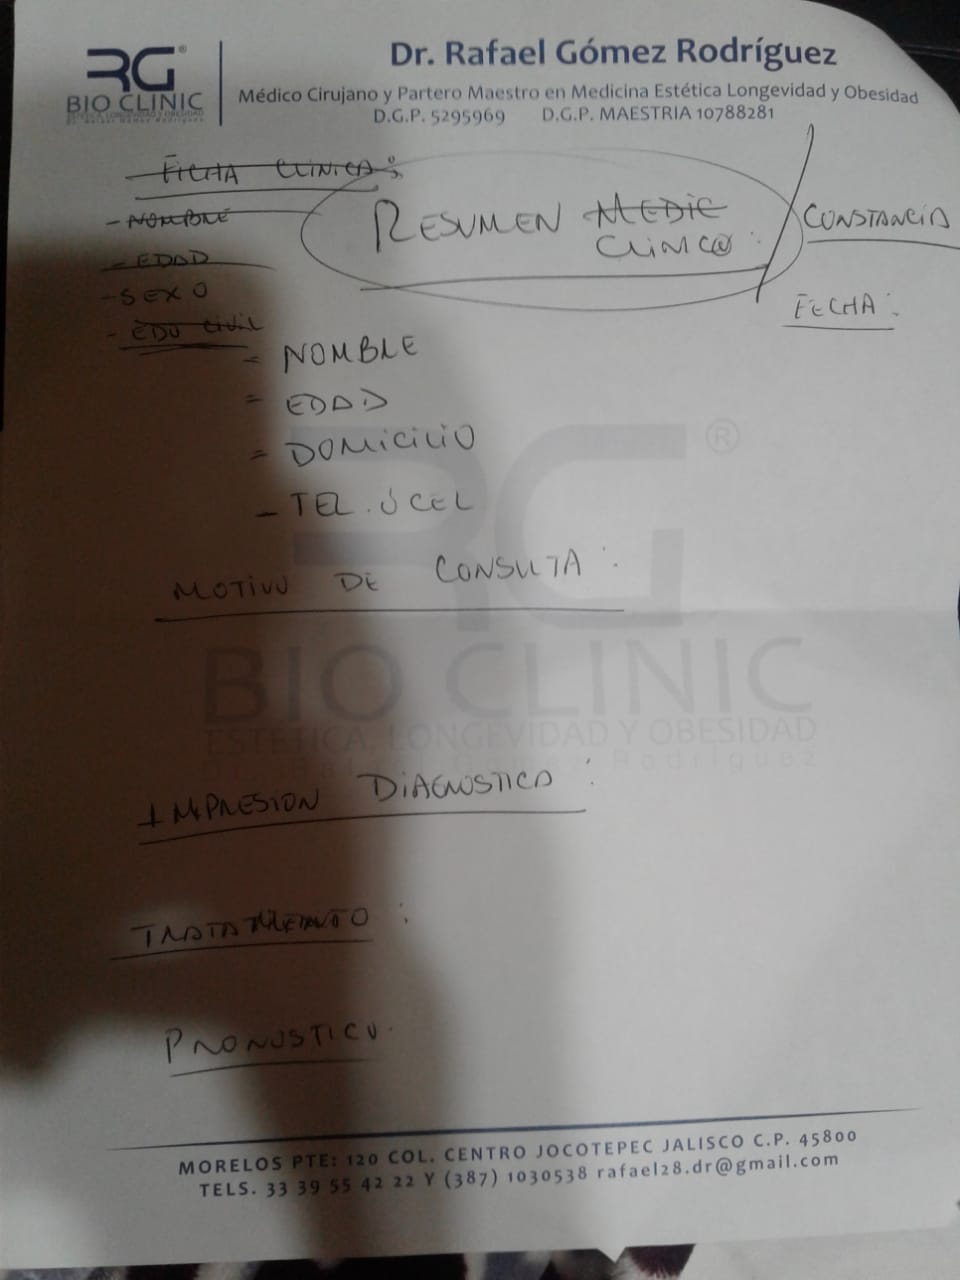 RG®
BIO CLINIC
ESTÉTICA, LONGEVIDAD Y OBESIDAD
Dr. Rafael Gómez Rodríguez
Dr. Rafael Gómez Rodríguez
Médico Cirujano y Partero Maestro en Medicina Estética Longevidad y Obesidad
D.G.P. 5295969 D.G.P. MAESTRIA 10788281
FICHA CLINICA:
- NOMBRE
- EDAD
- SEXO
- EDO CIVIL
RESUMEN MEDIC
CLINICO:
CONSTANCIA
FECHA:
= NOMBRE
= EDAD
= DOMICILIO
- TEL. Ó CEL
MOTIVO DE CONSULTA:
RG®
BIO CLINIC
ESTÉTICA, LONGEVIDAD Y OBESIDAD
Dr. Rafael Gómez Rodríguez
IMPRESION DIAGNOSTICA:
TRATAMIENTO:
PRONOSTICO.
MORELOS PTE: 120 COL. CENTRO JOCOTEPEC JALISCO C.P. 45800
TELS. 33 39 55 42 22 Y (387) 1030538 rafael28.dr@gmail.com